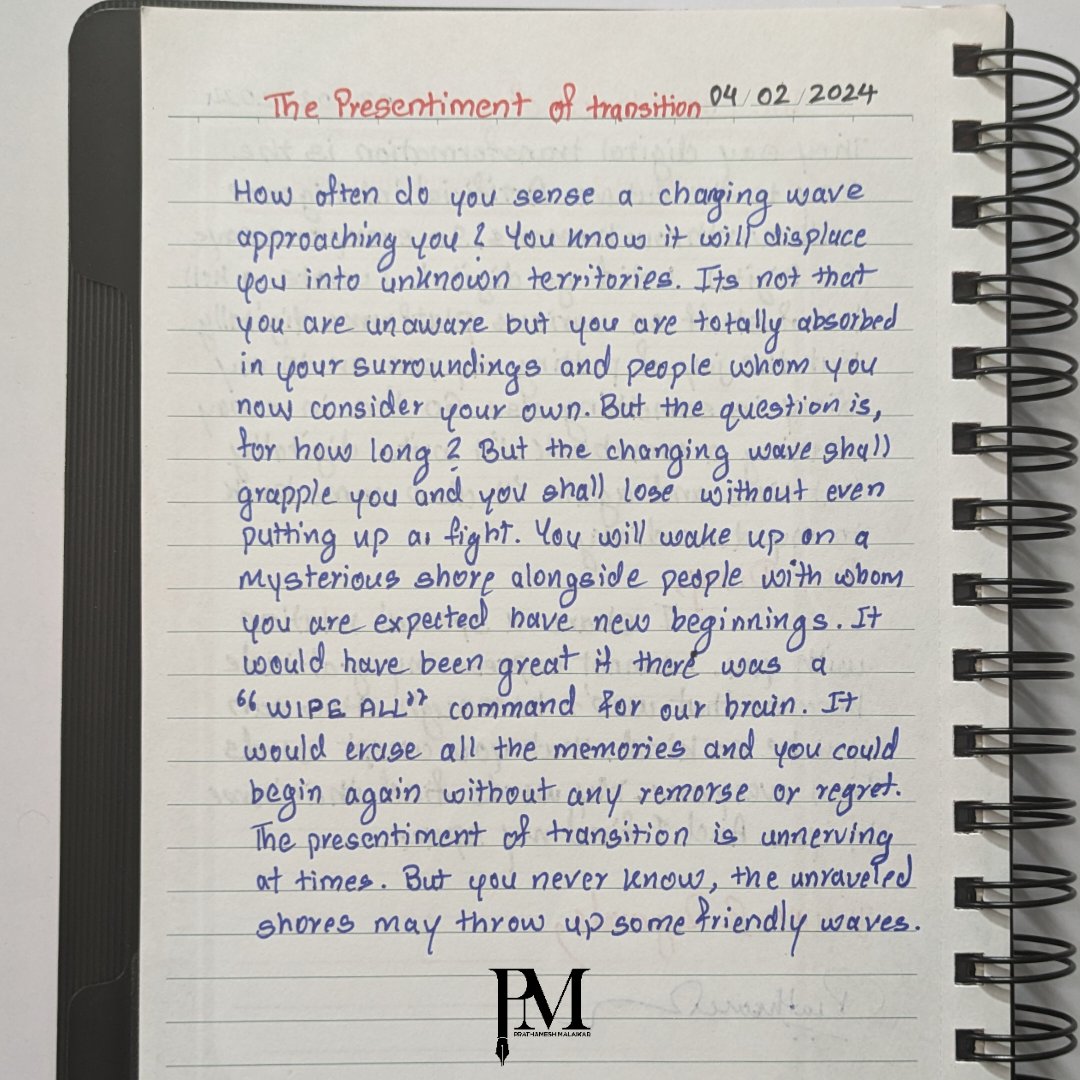 The Presentiment of transition 04/02/2024
How often do you sense a changing wave
approaching you? You know it will displace
you into unknown territories. Its not that
you are unaware but you are totally absorbed
in your surroundings and people whom you
now consider your own. But the question is,
for how long? But the changing wave shall
grapple you and you shall lose without even
putting up a fight. You will wake up on a
mysterious shore alongside people with whom
you are expected have new beginnings. It
would have been great if there was a
“WIPE ALL” command for our brain. It
would erase all the memories and you could
begin again without any remorse or regret.
The presentiment of transition is unnerving
at times. But you never know, the unraveled
shores may throw up some friendly waves.
PM
PRATHAMESH MALAIKAR